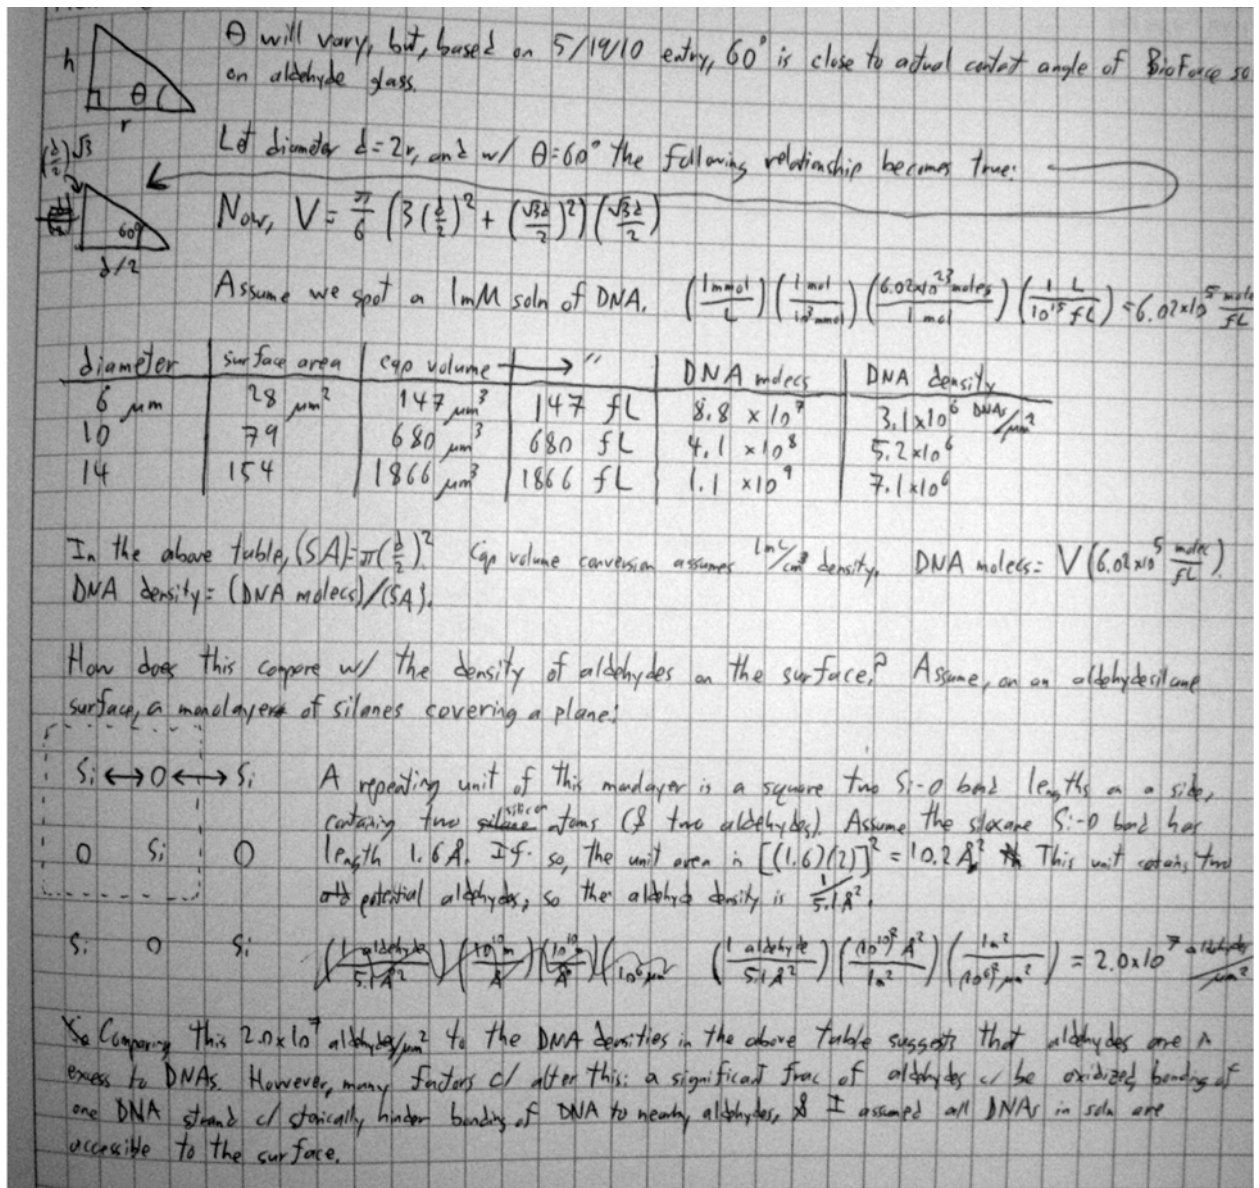 h
θ
r
θ will vary, but, based on 5/19/10 entry, 60° is close to actual contact angle of BioForce so
on aldehyde glass.
Let diameter d=2r, and w/ θ=60° the following relationship becomes true:
(d/2)√3
60°
d/2
Now, V = π/6 (3(d/2)² + (√3d/2)²)(√3d/2)
Assume we spot a 1mM soln of DNA. (1 mmol/L)(1 mol/10³ mmol)(6.02x10²³ molecs/1 mol)(1 L/10¹⁵ fL) = 6.02x10⁵ molec/fL
diameter | surface area | cap volume → " | DNA molecs | DNA density
6 μm | 28 μm² | 147 μm³ | 147 fL | 8.8 x 10⁷ | 3.1x10⁶ DNAs/μm²
10 | 79 | 680 μm³ | 680 fL | 4.1 x10⁸ | 5.2x10⁶
14 | 154 | 1866 μm³ | 1866 fL | 1.1 x10⁹ | 7.1x10⁶
In the above table, (SA)=π(d/2)². Cap volume conversion assumes 1mL/cm³ density. DNA molecs= V(6.02x10⁵ molec/fL).
DNA density= (DNA molecs)/(SA).
How does this compare w/ the density of aldehydes on the surface? Assume, on an aldehydesilane
surface, a monolayer of silanes covering a plane:
Si ↔ O ↔ Si
O Si O
Si O Si
A repeating unit of this monolayer is a square two Si-O bond lengths on a side,
containing two silicon atoms (& two aldehydes). Assume the siloxane Si-O bond has
length 1.6 Å. If so, the unit area is [(1.6)(2)]² = 10.2 Å². This unit contains two
potential aldehydes, so the aldehyde density is 1/5.1Å².
(1 aldehyde/5.1Å²)(10¹⁰m/Å)(10¹⁰m/Å)(10⁶μm
(1 aldehyde/5.1Å²)((10¹⁰)² Å²/1m²)(1m²/(10⁶)² μm²) = 2.0x10⁷ aldehydes/μm²
Comparing this 2.0x10⁷ aldehydes/μm² to the DNA densities in the above table suggests that aldehydes are in
excess to DNAs. However, many factors c/ alter this: a significant frac of aldehydes c/ be oxidized, bonding of
one DNA strand c/ sterically hinder bonding of DNA to nearby aldehydes, & I assumed all DNAs in soln are
accessible to the surface.